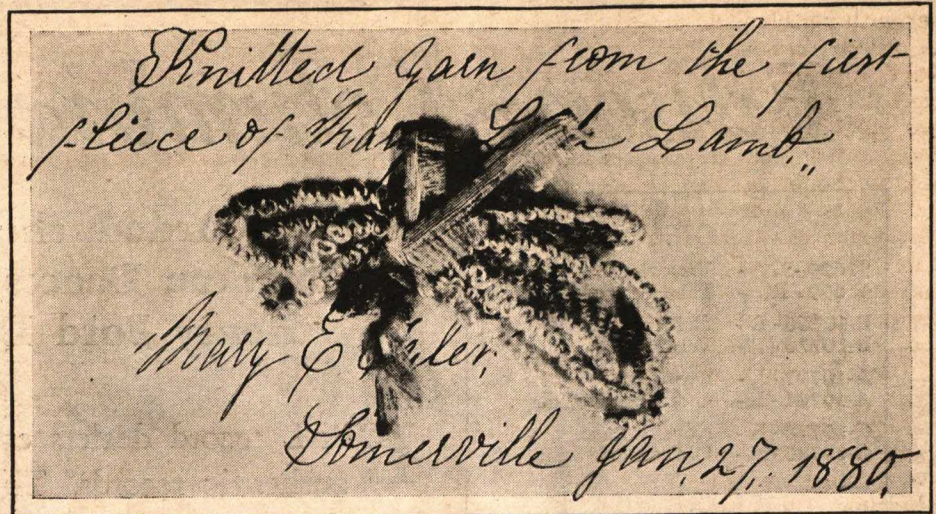 Knitted yarn from the first
fleece of Lamb."
Mary E Tyler,
Somerville Jan, 27, 1880,